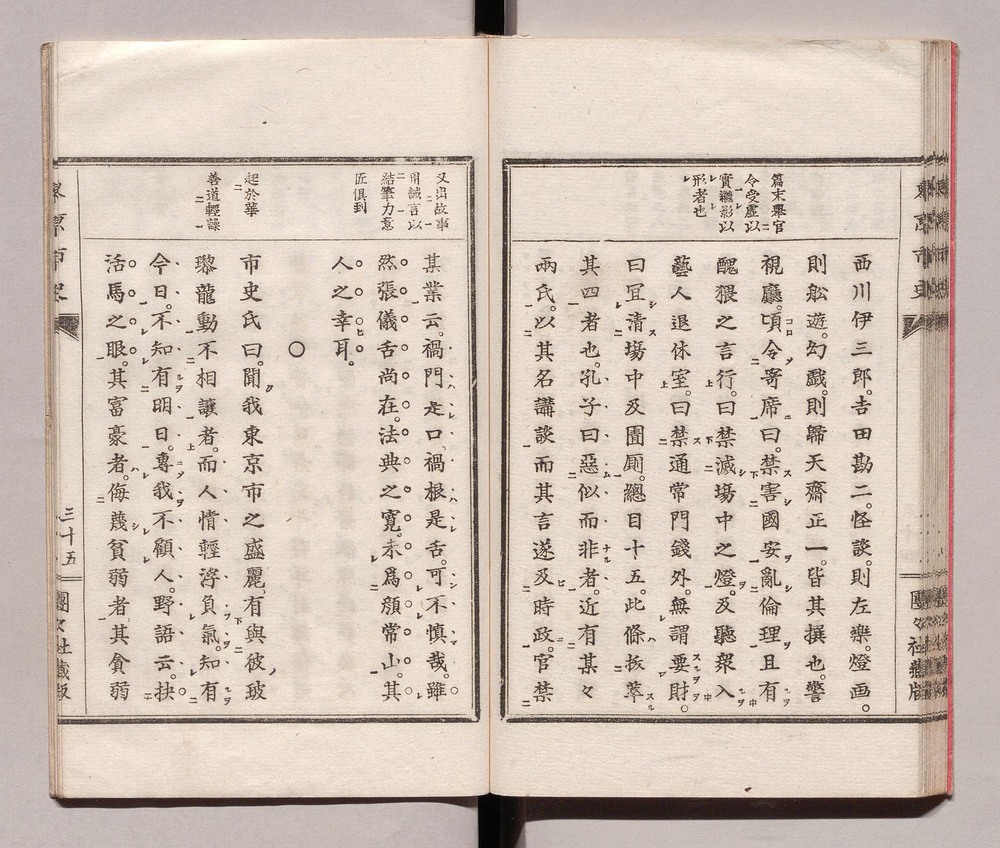 篇末擧官
令受虚以
實繼影以
形者也
西川伊三郎。吉田勘二。怪談。則左樂。燈画。
則舩遊。幻戲。則歸天齋正一。皆其撰也。警
視廳。頃令寄席曰。禁害國安。亂倫理。且有
醜猥之言行。曰禁滅塲中之燈。及聽衆入
藝人退休室。曰禁通常門錢外。無謂要財。
曰冝清塲中及圊厠。總目十五。此條抜萃
其四者也。孔子曰。惡似而非者。近有某々
兩氏。以其名講談而其言遂及時政。官禁
又出故事
用諴言以
結筆力意
匠俱到
其業云。禍門走口。禍根是舌。可不慎哉。雖
然張儀舌尚在。法典之寛。未爲顔常山。其
人之幸耳。
○
起於華
善道輕譟
市史氏曰。聞我東京市之盛麗。有與彼玻
瓈龍動不相讓者。而人情輕浮負氣。知有
今日。不知有明日。專我不顧人。野語云。抉
活馬之眼。其富豪者。侮蔑貧弱者。其貪弱
東京市史
三十五
團々社藏版